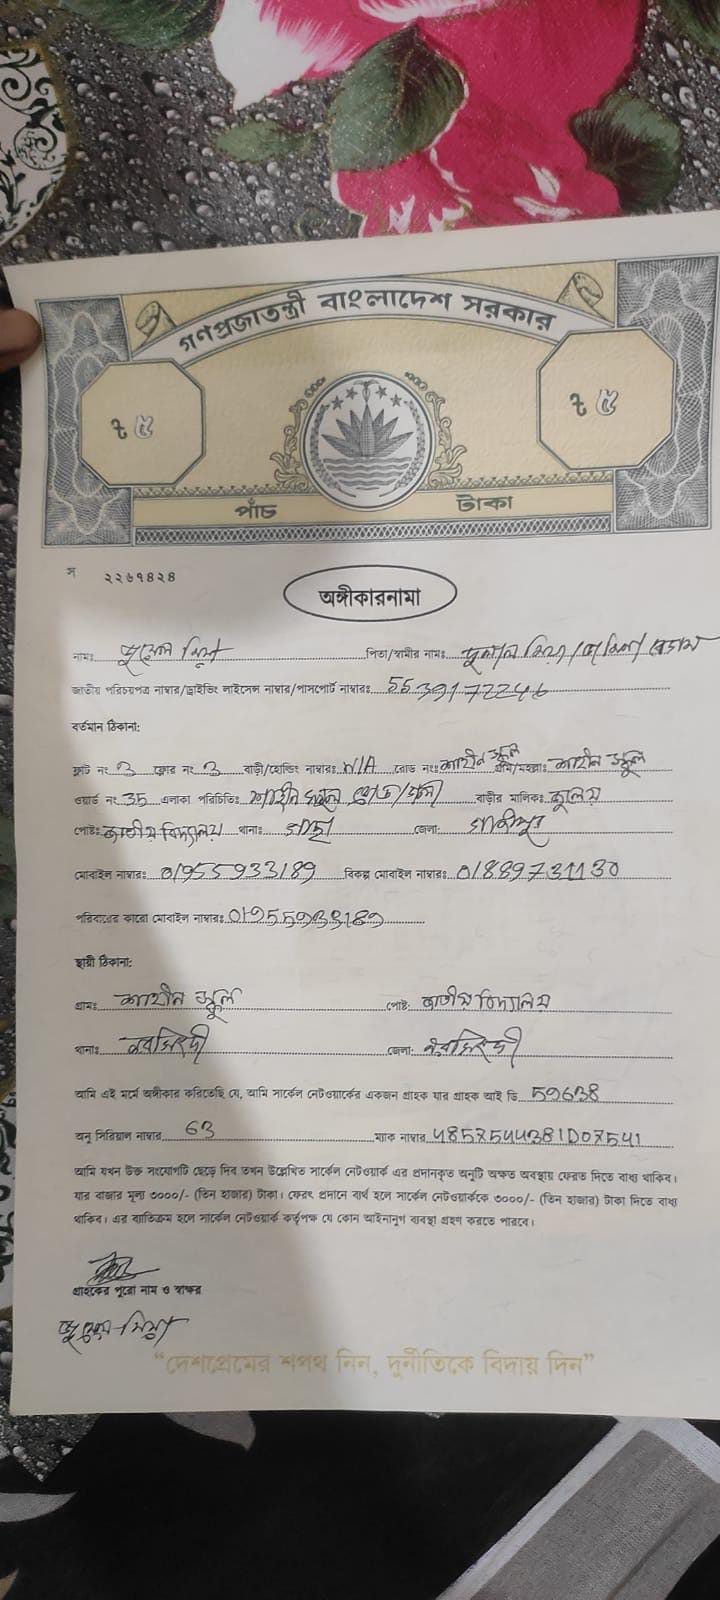 গণপ্রজাতন্ত্রী বাংলাদেশ সরকার
৳ ৫ ৳ ৫
পাঁচ টাকা
স ২২৬৭৪২৪
অঙ্গীকারনামা
নামঃ জুয়েল মিয়া পিতা/স্বামীর নামঃ দুলাল মিয়া/
জাতীয় পরিচয়পত্র নাম্বার/ড্রাইভিং লাইসেন্স নাম্বার/পাসপোর্ট নাম্বারঃ 5539172246
বর্তমান ঠিকানা:
ফ্লাট নং 3 ফ্লোর নং 3 বাড়ী/হোল্ডিং নাম্বারঃ N/A রোড নংঃ শাহীন স্কুল গ্রাম/মহল্লাঃ শাহীন স্কুল
ওয়ার্ড নং 35 এলাকা পরিচিতিঃ শাহীন স্কুল রোড/ বাড়ীর মালিকঃ
পোষ্টঃ জাতীয় বিদ্যালয় থানাঃ গাছা জেলা: গাজীপুর
মোবাইল নাম্বারঃ 01955933189 বিকল্প মোবাইল নাম্বারঃ 01889731130
পরিবারের কারো মোবাইল নাম্বারঃ 01955933189
স্থায়ী ঠিকানা:
গ্রামঃ শাহীন স্কুল পোষ্ট: জাতীয় বিদ্যালয়
থানাঃ নরসিংদী জেলা: নরসিংদী
আমি এই মর্মে অঙ্গীকার করিতেছি যে, আমি সার্কেল নেটওয়ার্কের একজন গ্রাহক যার গ্রাহক আই ডি 59638
অনু সিরিয়াল নাম্বার 63 ম্যাক নাম্বার 4857544381D07541
আমি যখন উক্ত সংযোগটি ছেড়ে দিব তখন উল্লেখিত সার্কেল নেটওয়ার্ক এর প্রদানকৃত অনুটি অক্ষত অবস্থায় ফেরত দিতে বাধ্য থাকিব।
যার বাজার মূল্য ৩০০০/- (তিন হাজার) টাকা। ফেরৎ প্রদানে ব্যর্থ হলে সার্কেল নেটওয়ার্ককে ৩০০০/- (তিন হাজার) টাকা দিতে বাধ্য
থাকিব। এর ব্যতিক্রম হলে সার্কেল নেটওয়ার্ক কর্তৃপক্ষ যে কোন আইনানুগ ব্যবস্থা গ্রহণ করতে পারবে।
গ্রাহকের পুরো নাম ও স্বাক্ষর
জুয়েল মিয়া
“দেশপ্রেমের শপথ নিন, দুর্নীতিকে বিদায় দিন”